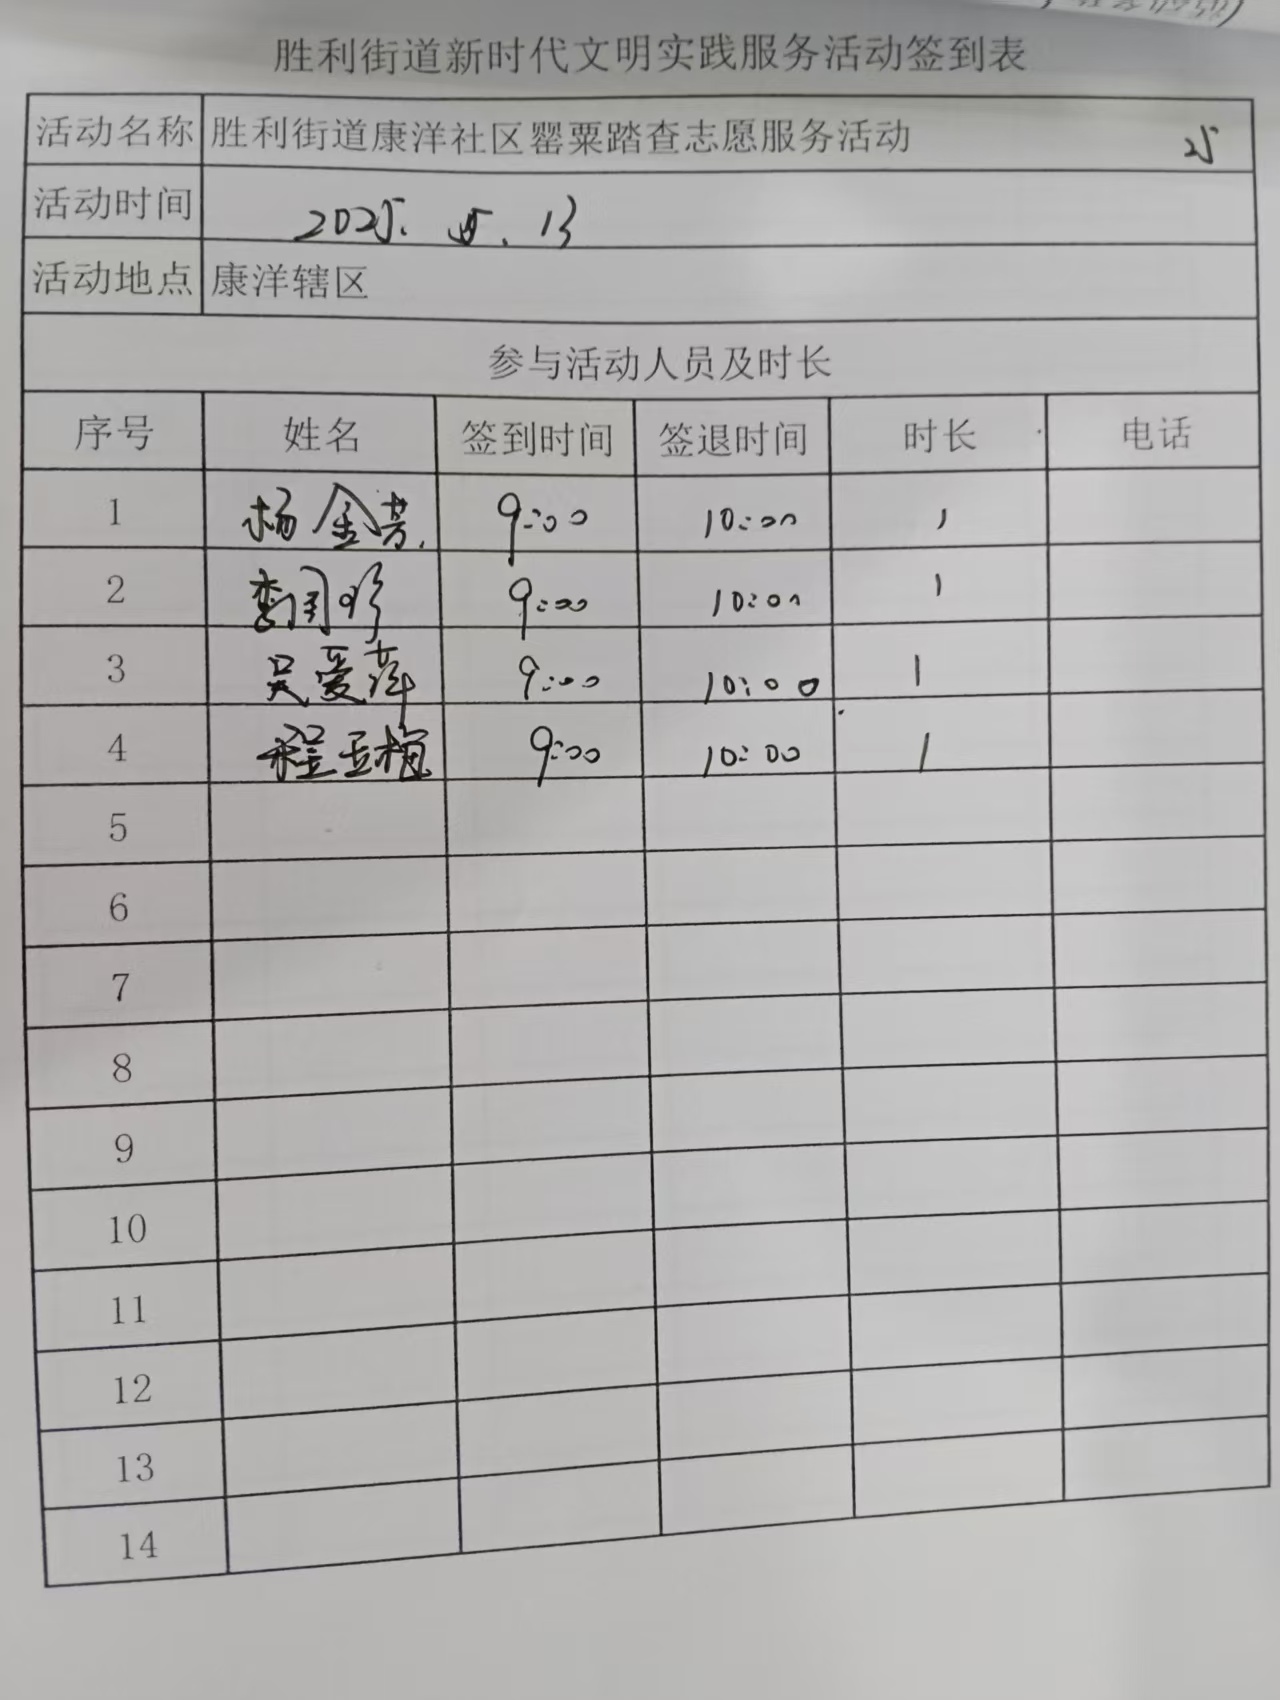 胜利街道新时代文明实践服务活动签到表
活动名称 胜利街道康洋社区罂粟踏查志愿服务活动 25
活动时间 2025. 5. 13
活动地点 康洋辖区
参与活动人员及时长
序号 姓名 签到时间 签退时间 时长 电话
1 杨金芳 9:00 10:00 1
2 9:00 10:00 1
3 吴爱萍 9:00 10:00 1
4 程玉梅 9:00 10:00 1
5
6
7
8
9
10
11
12
13
14